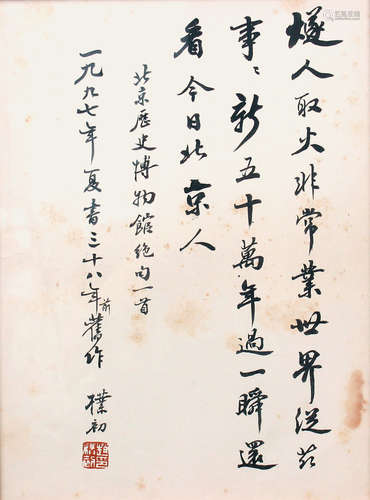 燧人取火非常業世界從茲
事〻新五十萬年過一瞬還
看今日北京人
北京歷史博物館絶句一首
一九九七年夏書三十八年前舊作
樸初